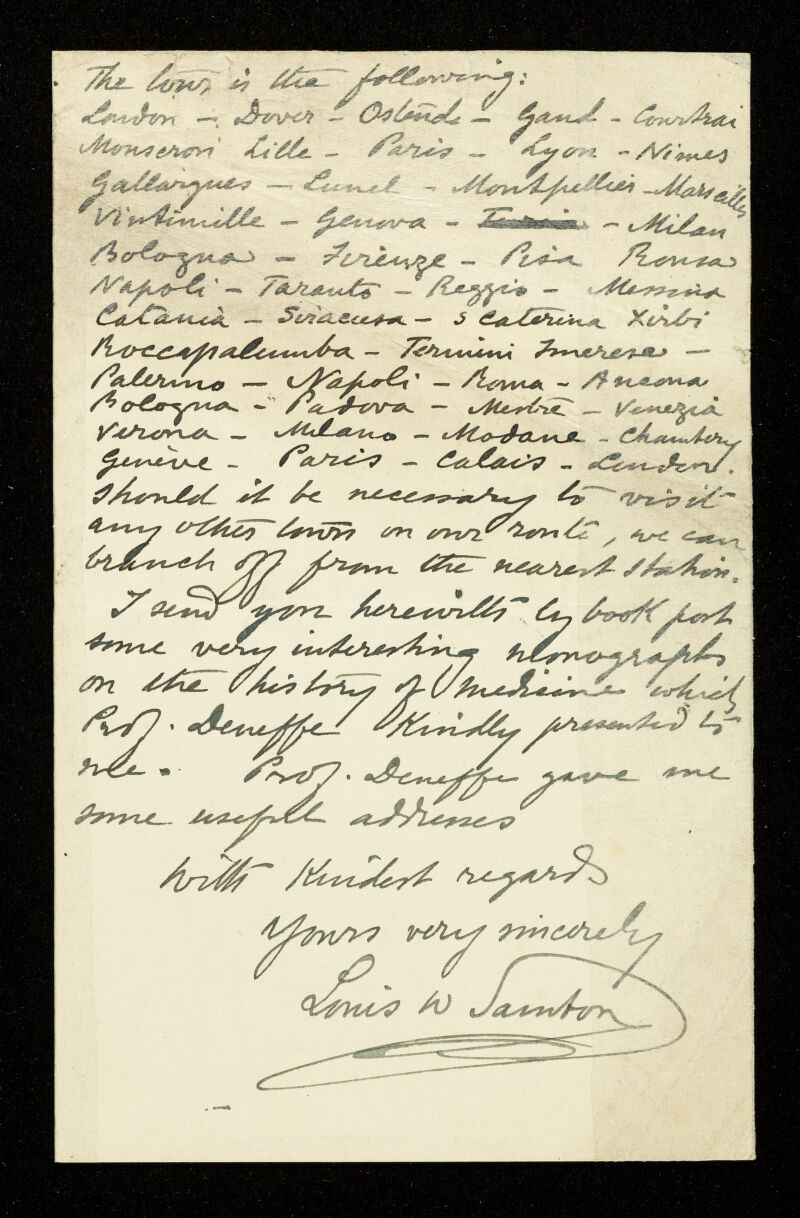 The tour is the following:
London – Dover – Ostende – Gand – Courtrai
Mouscron Lille – Paris – Lyon – Nimes
Gallargues – Lunel – Montpellier – Marseilles
Vintimille – Genova – – Milan
Bologna – Firenze – Pisa Roma
Napoli – Taranto – Reggio – Messina
Catania – Siracusa – S Caterina Xirbi
Roccapalumba – Termini Imerese –
Palermo – Napoli – Roma – Ancona
Bologna – Padova – Mestre – Venezia
Verona – Milano – Modane – Chambery
Genève – Paris – Calais – London.
Should it be necessary to visit
any other town on our route, we can
branch off from the nearest station.
I send you herewith by book post
some very interesting monographs
on the history of medicine which
Prof. Deneffe kindly presented to
me. Prof. Deneffe gave me
some useful addresses
With kindest regards
Yours very sincerely
Louis W Sambon